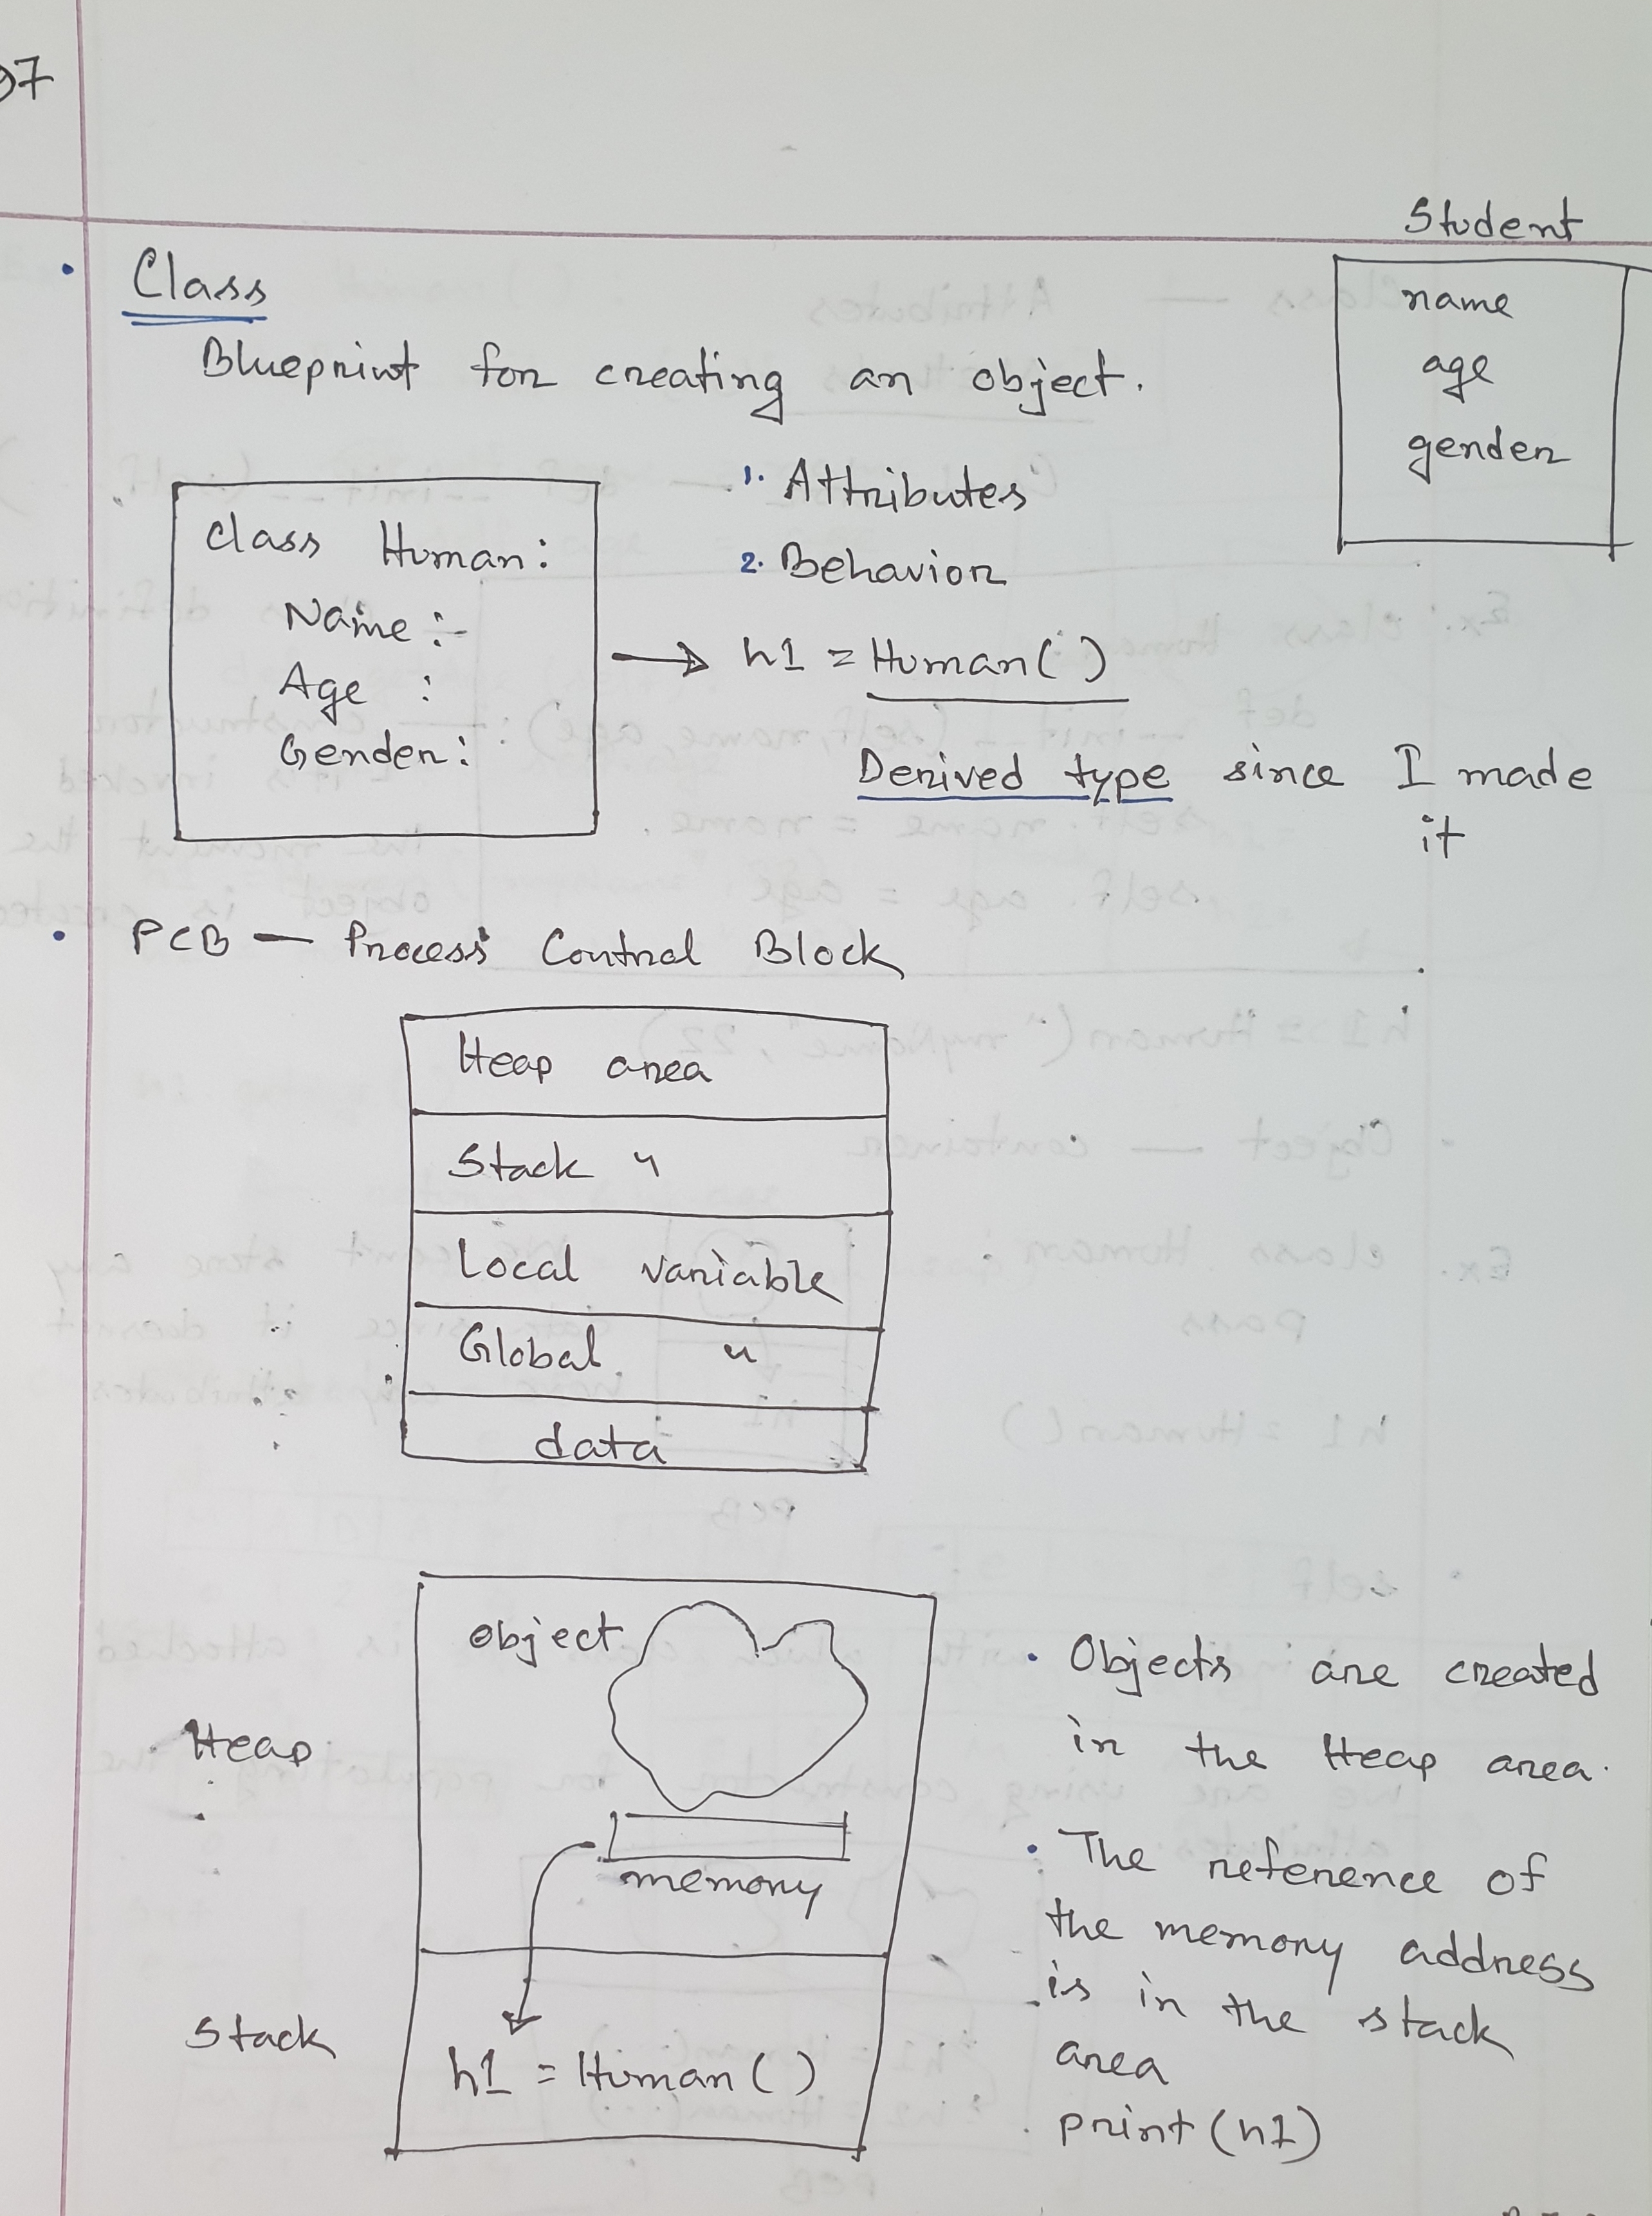 07
Student
name
age
gender
Class
Blueprint for creating an object.
1. Attributes
2. Behavior
class Human:
Name :-
Age :
Gender:
→ h1 = Human()
Derived type since I made
it
PCB — Process Control Block
Heap area
Stack "
Local variable
Global "
data
Heap
object
memory
Stack
h1 = Human()
• Objects are created
in the Heap area.
• The reference of
the memory address
is in the stack
area
print(h1)